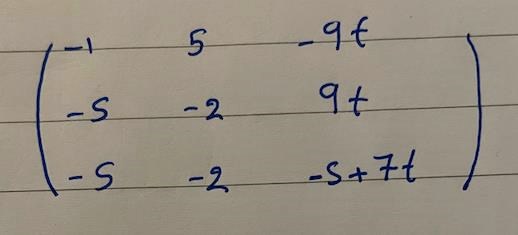 -1 5 -9t
-5 -2 9t
-5 -2 -5+7t